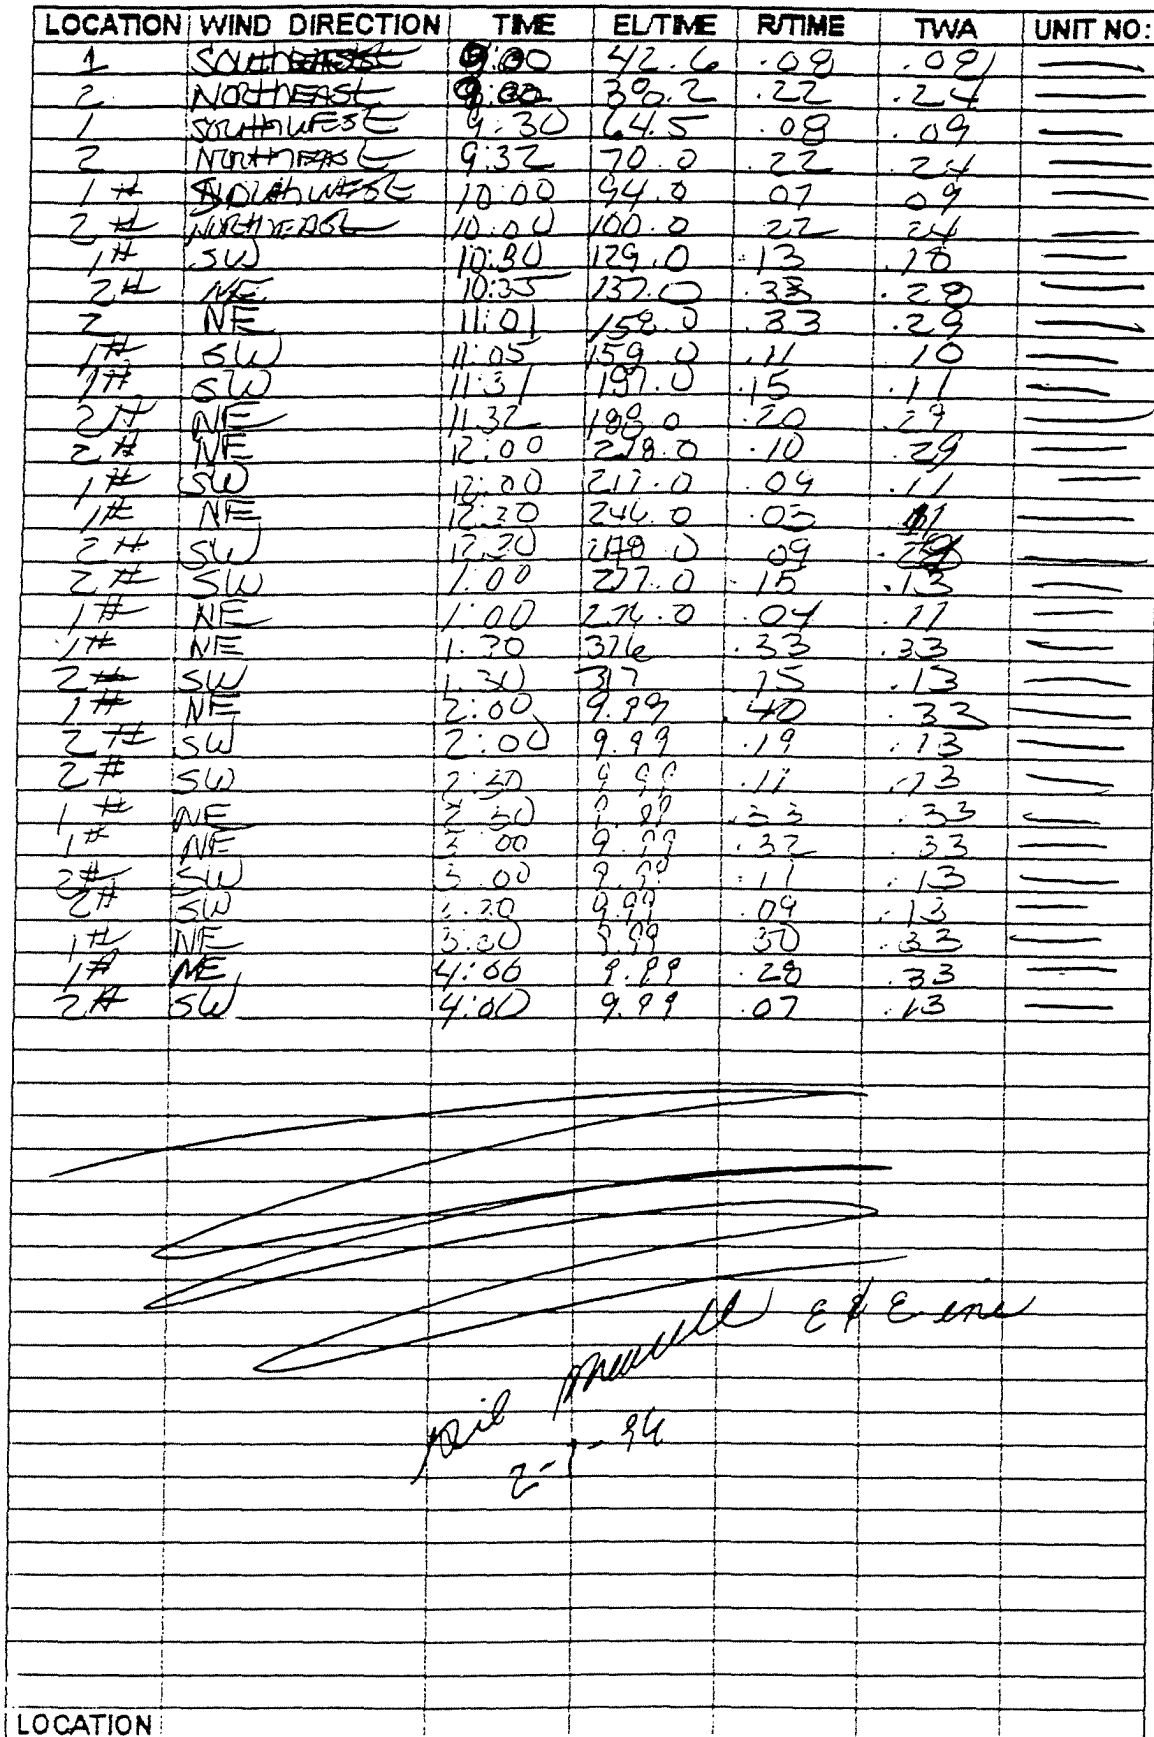 LOCATION WIND DIRECTION TIME EL/TIME R/TIME TWA UNIT NO:
1 9:00 42.6 .08 .08 —
2 NORTHEAST 9:00 .22 .24 —
1 SOUTHWEST 9:30 64.5 .08 .09 —
2 NORTHEAST 9:32 70.0 .22 .24 —
1# SOUTHWEST 10:00 94.0 07 09 —
2# NORTHEAST 10:00 100.0 .22 24 —
1# SW 10:30 129.0 .13 .10 —
2# NE 10:35 137.0 .33 .28 —
2 NE 11:01 158.0 .33 .29 —
1# SW 11:05 159.0 .11 10 —
1# SW 11:31 187.0 .15 .11 —
2# NE 11:32 188.0 .20 .29 —
2# NE 12:00 218.0 .10 .29 —
1# SW 12:00 217.0 .09 .11 —
1# NE 12:30 246.0 .05 .11 —
2# SW 12:30 09 —
2# SW 1:00 277.0 .15 .13 —
1# NE 1:00 276.0 .04 .11 —
1# NE 1:30 316 .33 .33 —
2# SW 1:30 317 15 .13 —
1# NE 2:00 9.99 .40 .33 —
2# SW 2:00 9.99 .19 .13 —
2# SW 2:30 9.99 .11 .13 —
1# NE 2:30 9.99 .33 .33 —
1# NE 3:00 9.99 .32 .33 —
2# SW 3:00 9.99 .11 .13 —
2# SW 3:30 9.99 .09 .13 —
1# NE 3:30 9.99 30 .33 —
1# NE 4:00 9.99 .28 .33 —
2# SW 4:00 9.99 .07 .13 —
E & E inc
LOCATION